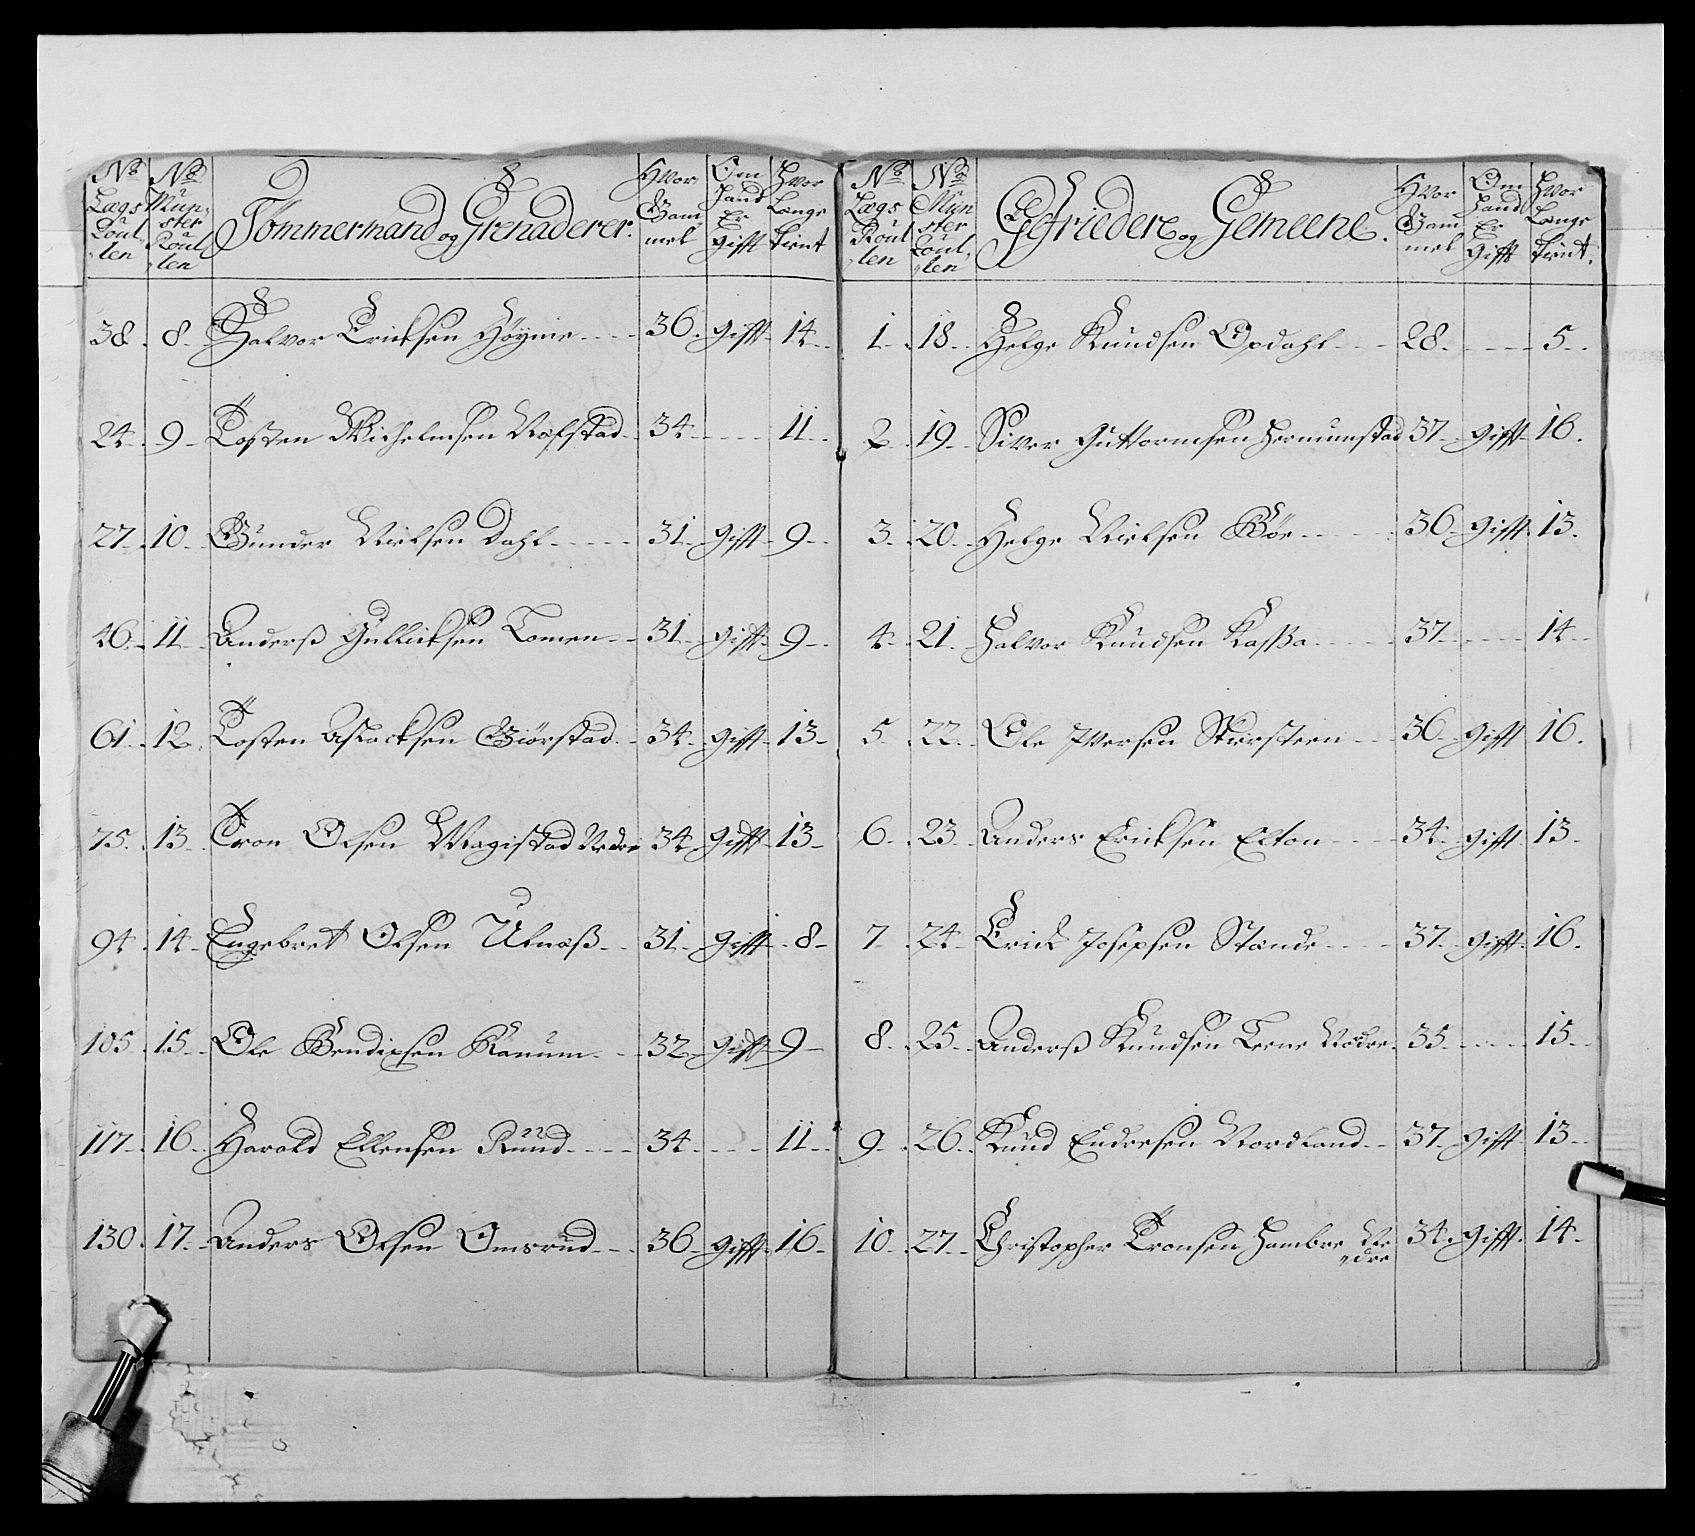 No Lægs Roullen | No Mün- ster Roullen | Tømmermænd og Grenaderer. | Hvor Gammel | Om hand Er Gifft | Hvor Længe tient
38. 8. Halvor Ericksen Høyme 36. Gifft 14
24. 9. Tosten Wilhelmsen Nøfstad 34 11
27. 10. Gunder Nielsen Dahl 31. Gifft 9
46. 11. Anderß Gullicksen Tomen 31. Gifft 9
61. 12. Tosten Aslacksen Giørstad 34. Gifft 13
75. 13. Tron Olsen Magistad Nedre 34. Gifft 13
94. 14. Engebret Olsen Ulnæß 31. Gifft 8
105. 15. Ole Bendixsen Ranum 32. Gifft 9
117. 16. Harald Ellensen Ruud 34 11
130. 17. Anders Olsen Omsrud 36. Gifft 16
No Lægs Roullen | No Mün ster Roullen | Gefriedere og Gemeene. | Hvor Gammel | Om hand Er Gifft | Hvor Længe tient.
1. 18. Helge Knudsen Opdahl 28. 5
2. 19. Siver Guttormsen Hermunstad 37. Gifft 16.
3. 20. Helge Nielsen Bøe 36. Gifft 13.
4. 21. Halvor Knudsen Kaßa 37 14
5. 22. Ole Iversen 36. Gifft 16.
6. 23. Anders Ericksen Elton 34. Gifft 13
7 24. Erich Josepsen Stande 37. Gifft 16.
8. 25. Anderß Knudsen Lerne Nedre 35. 15
9. 26. Knud Endresen Nordland 37. Gifft 13
10. 27. Christopher Tronsen Hambre Ne
dre 34. Gifft. 14